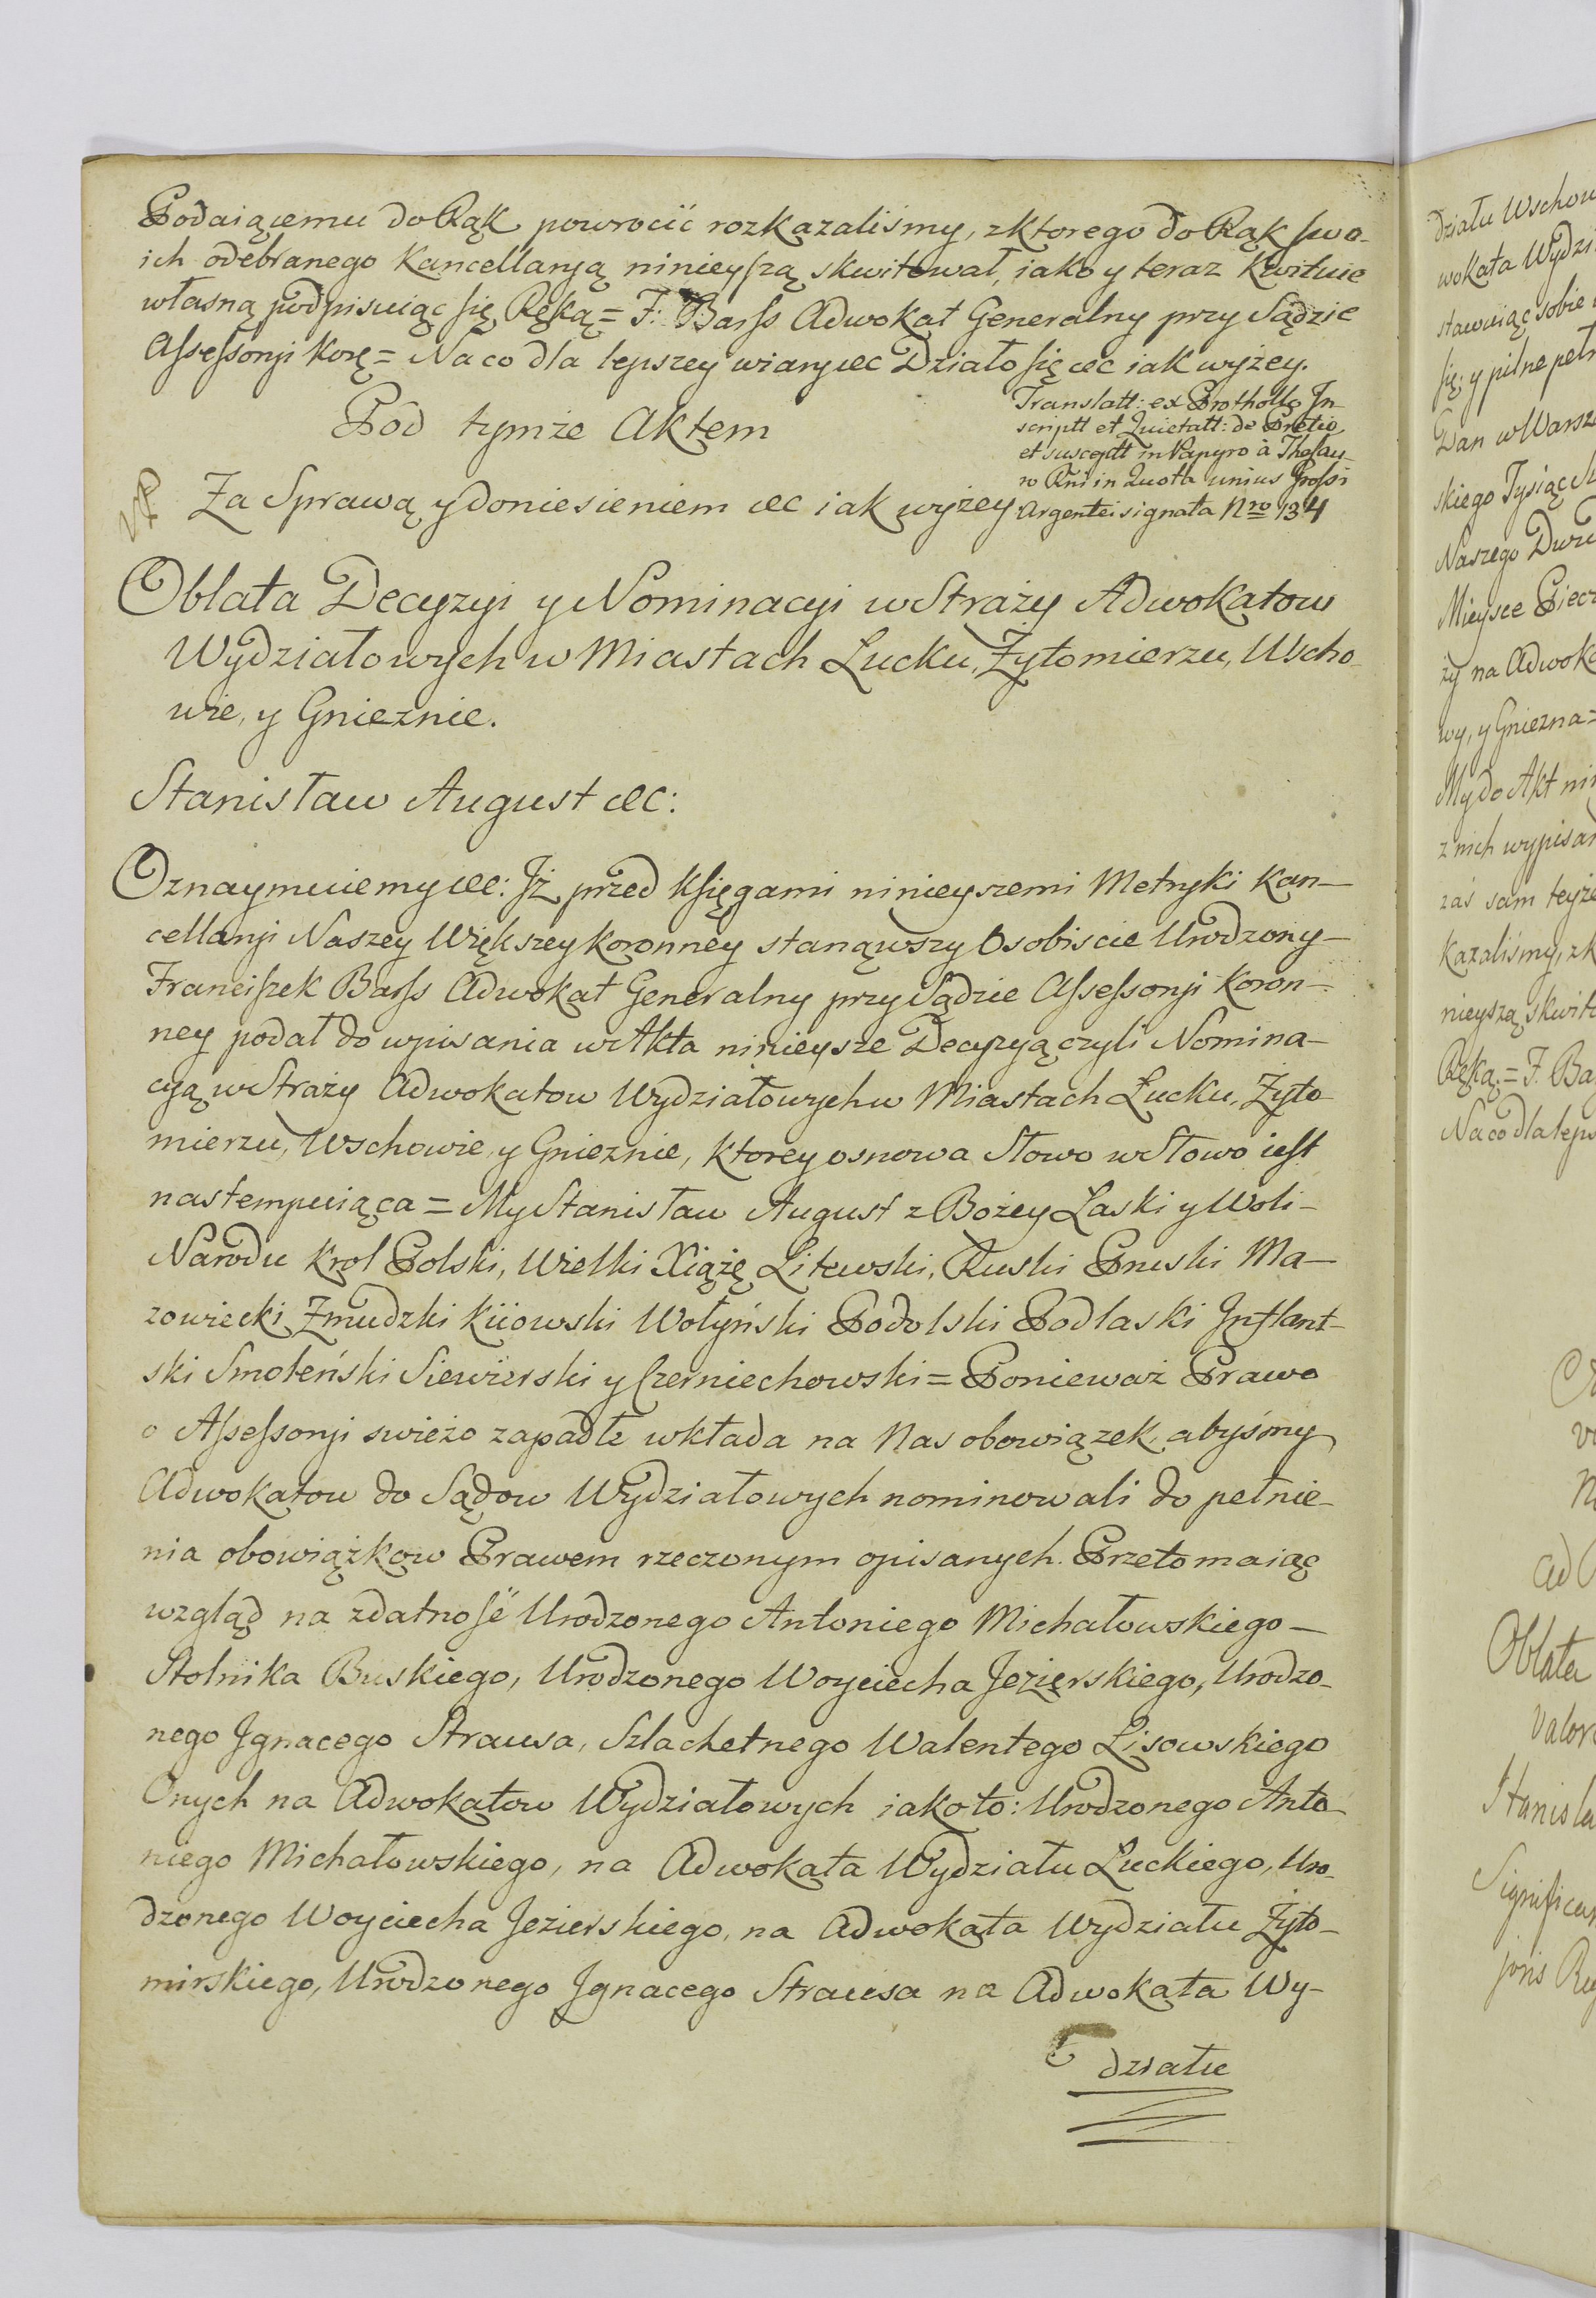 Podaiącemu do Rąk powrocić rozkazaliśmy, z ktorego do Rąk swo-
ich odebranego Kancellaryą ninieyszą skwitował, iako y teraz kwituie
własną podpisuiąc się Ręką = F: Barss Adwokat Generalny przy Sądzie
Assessoryi Korę = Na co dla lepszey wiary &c Działo się &c iak wyżey.
Pod tymże Aktem
Translatt: ex Protholło In-
scriptt et Quietatt: de Pretio
et susceptt in Papyro à Thesau-
ro Rñi in Quota unius Grossi
Argentei signata Nro 134
Za Sprawą y doniesieniem &c iak wyżey
Oblata Decyzyi y Nominacyi w Straży Adwokatow
Wydziałowych w Miastach Łucku, Żytomierzu, Wscho-
wie, y Gnieznie.
Stanisław August &c:
Oznaymuiemy &c: Jż przed Księgami ninieyszemi Metryki Kan-
cellaryi Naszey Większey Koronney stanąwszy Osobiscie Urodzony-
Franciszek Barss Adwokat Generalny przy Sądzie Assessoryi Koron-
ney podał do wpisania w Akta ninieysze Decyzyą czyli Nomina-
cyą w Straży Adwokatow Wydziałowych w Miastach Łucku, Żyto-
mierzu, Wschowie, y Gnieznie, ktorey osnowa Słowo w Słowo iest
nastempuiąca = My Stanisław August z Bożey Łaski y Woli-
Narodu Krol Polski, Wielki Xiążę Litewski, Ruski Pruski Ma-
zowiecki Zmudzki Kiiowski Wołyński Podolski Podlaski Inflant-
ski Smoleński Siewierski y Czerniechowski = Ponieważ Prawo
o Assessoryi swieżo zapadłe wkłada na Nas obowiązek, abyśmy
Adwokatow do Sądow Wydziałowych nominowali do pełnie-
nia obowiązkow Prawem rzeczonym opisanych. Przeto maiąc
wzgląd na zdatność Urodzonego Antoniego Michałowskiego-
Stolnika Buskiego, Urodzonego Woyciecha Jezierskiego, Urodzo-
nego Jgnacego Strausa, Szlachetnego Walentego Lisowskiego
Onych na Adwokatow Wydziałowych iako to: Urodzonego Anto-
niego Michałowskiego, na Adwokata Wydziału Łuckiego, Uro-
dzonego Woyciecha Jezierskiego, na Adwokata Wydziału Żyto-
mirskiego, Urodzonego Jgnacego Strausa na Adwokata Wy-
działu
działu Wschow
wokata Wydzi
stawuiąc sobie
się y pilne pełn
Dan w Warsz
skiego Tysiąc
Naszego Dwu
Mieysce Piecz
ży na Adwoka
wy, y Gniezna =
My do Akt nin
z nich wypisa
zaś sam teyże
kazaliśmy, z k
nieyszą skwit
Ręką = F. Ba
Na co dla leps
Oblata
Valor
Stanisla
Significa